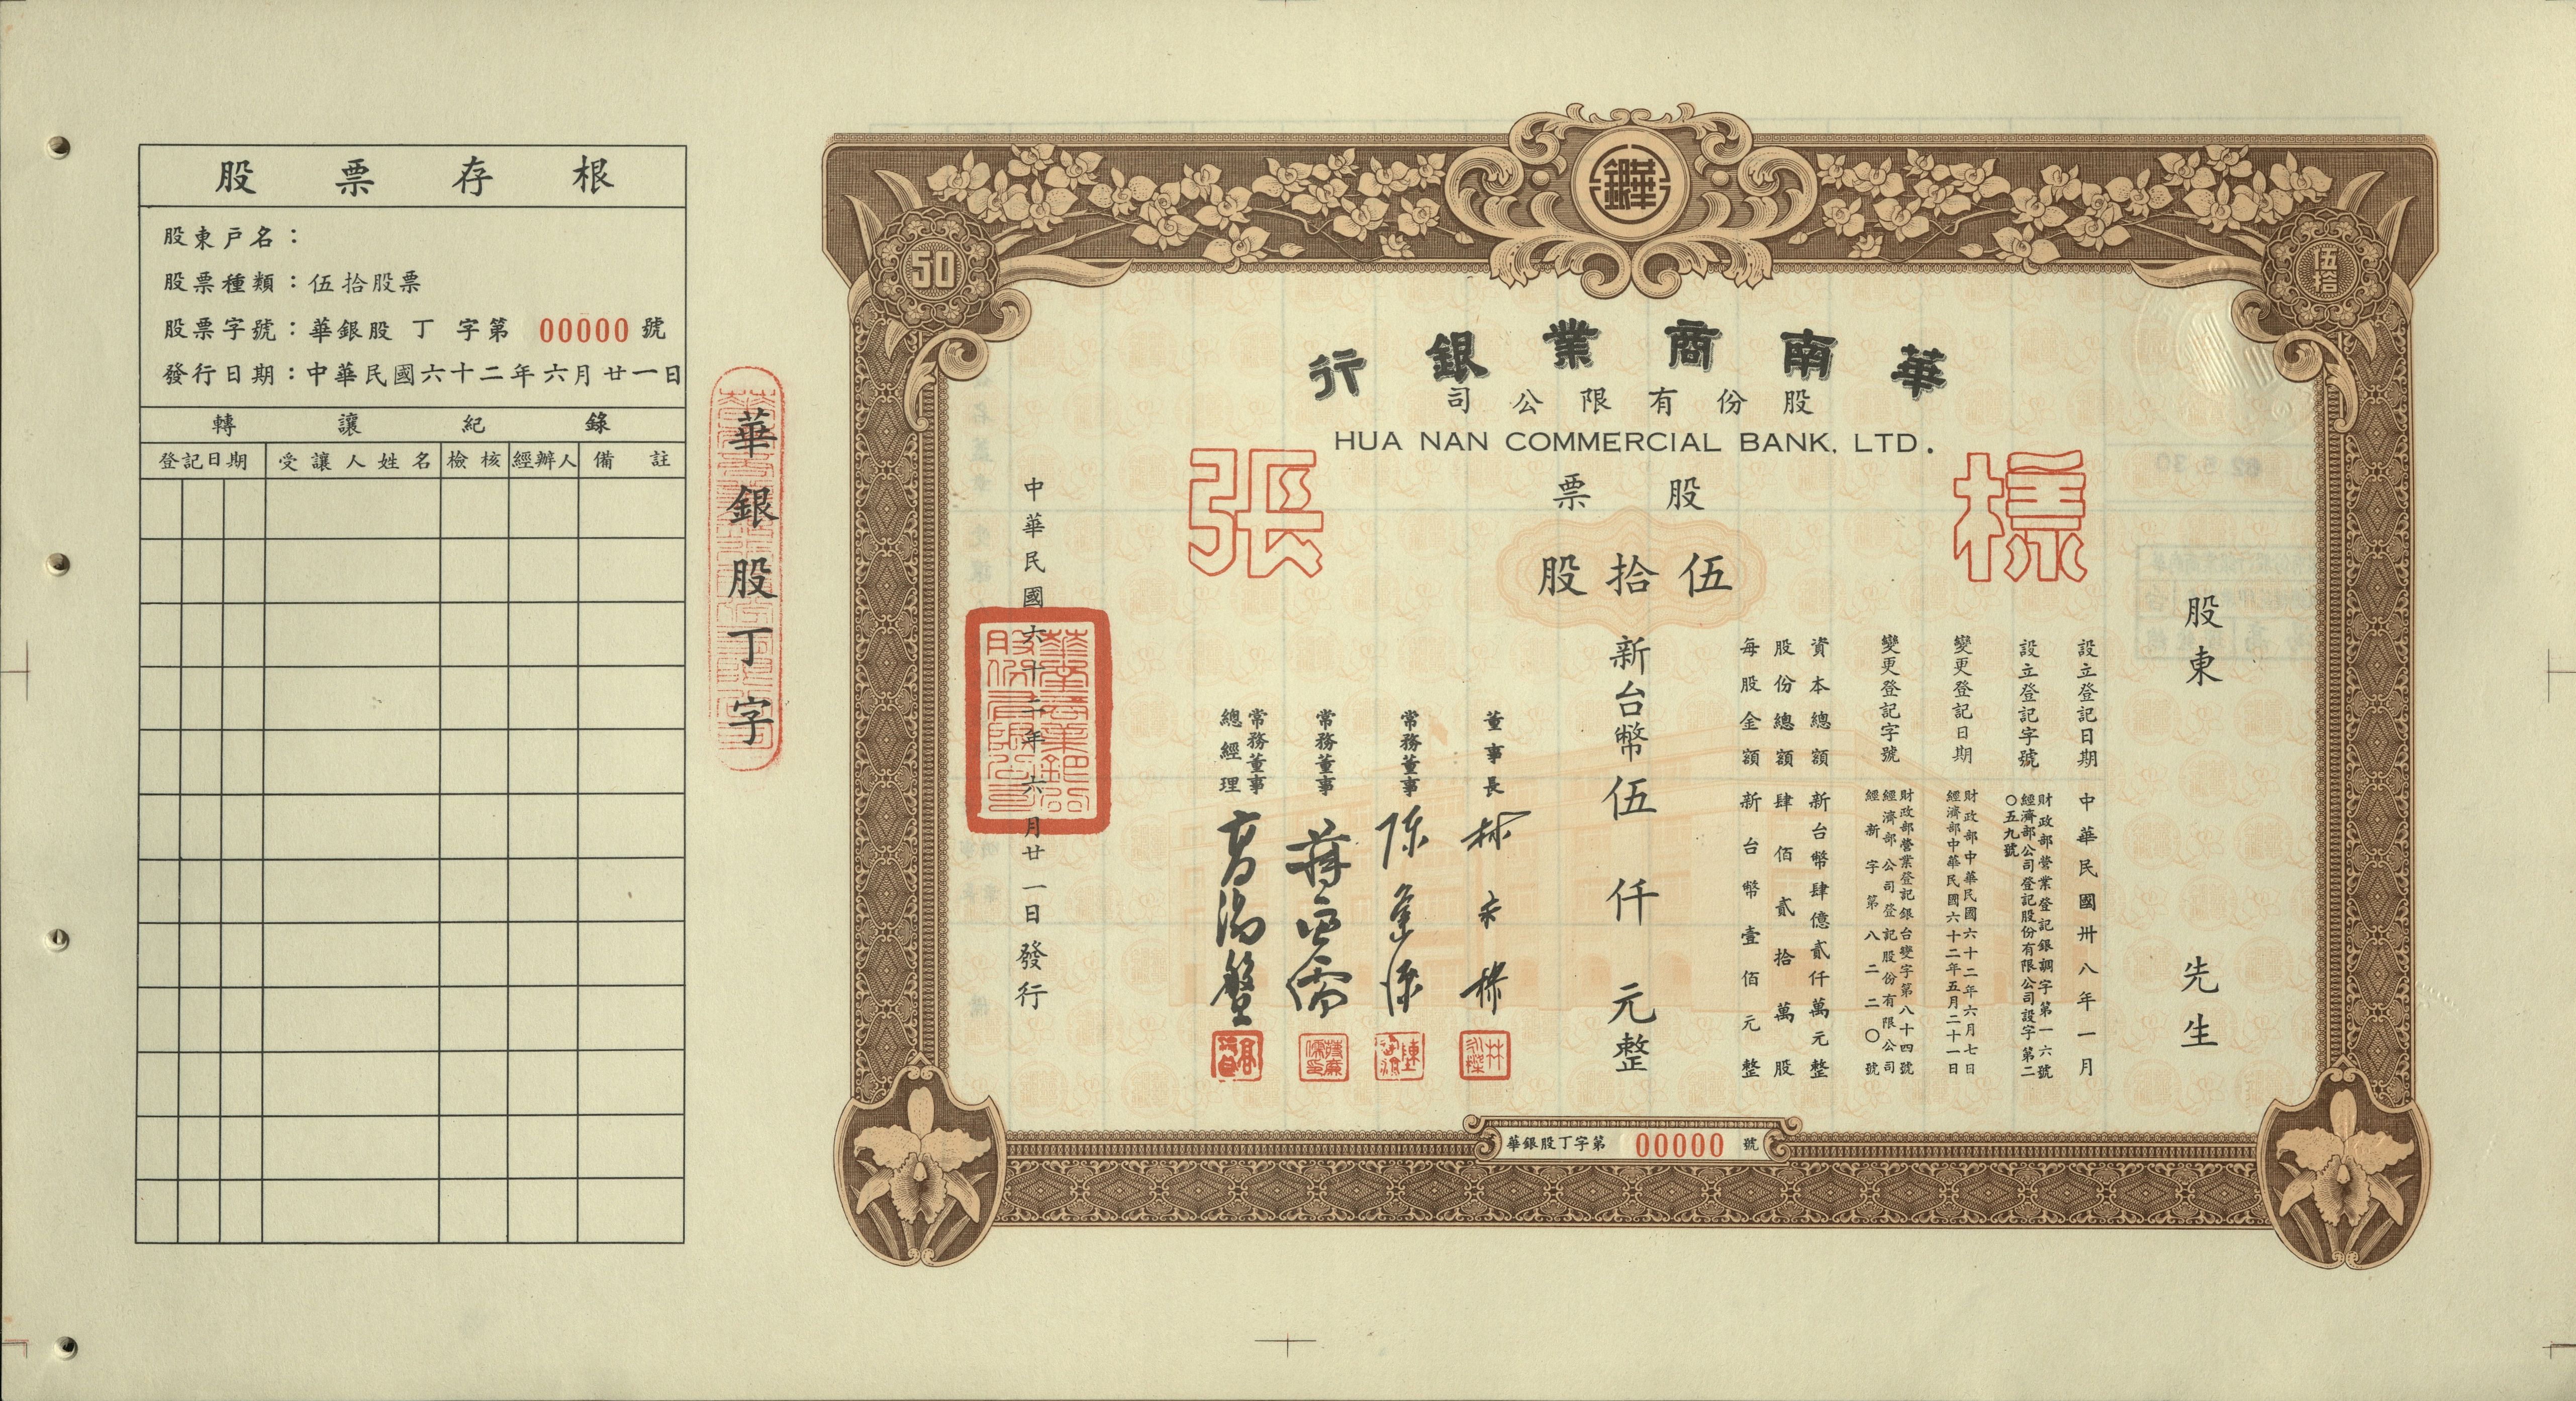 股票存根
股東戶名：
股票種類：伍拾股票
股票字號：華銀股 丁 字第 00000 號
發行日期：中華民國六十二年六月廿一日
轉讓紀錄
登記日期 受讓人姓名 檢核 經辦人 備註
華銀股丁字
華銀
50
伍拾
華南商業銀行
股份有限公司
HUA NAN COMMERCIAL BANK, LTD.
樣張
股票
伍拾股
股東 先生
設立登記日期 中華民國卅八年一月
設立登記字號 財政部營業登記銀調字第一六號
經濟部公司登記股份有限公司設字第二〇五九號
變更登記日期 財政部中華民國六十二年六月七日
經濟部中華民國六十二年五月二十一日
變更登記字號 財政部營業登記銀台變字第八十四號
經濟部公司登記股份有限公司
經新字第八二二〇號
資本總額 新台幣肆億貳仟萬元整
股份總額 肆佰貳拾萬股
每股金額 新台幣壹佰元整
新台幣伍仟元整
董事長
常務董事
常務董事
常務董事
總經理
中華民國六十二年六月廿一日發行
華銀股丁字第 00000 號